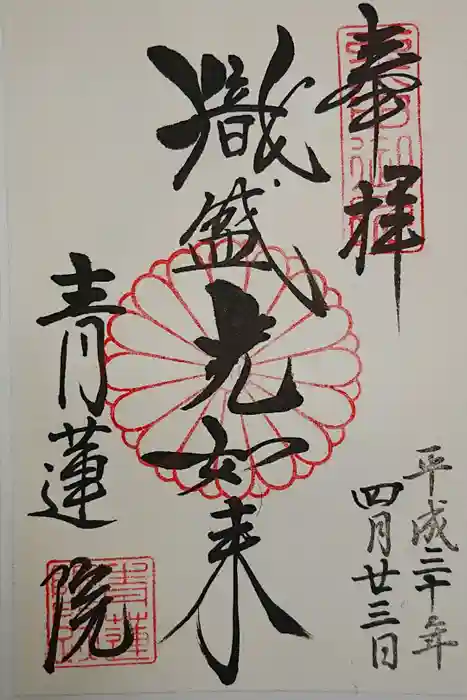 奉拝
熾盛光如来
青蓮院
平成三十年
四月廿三日